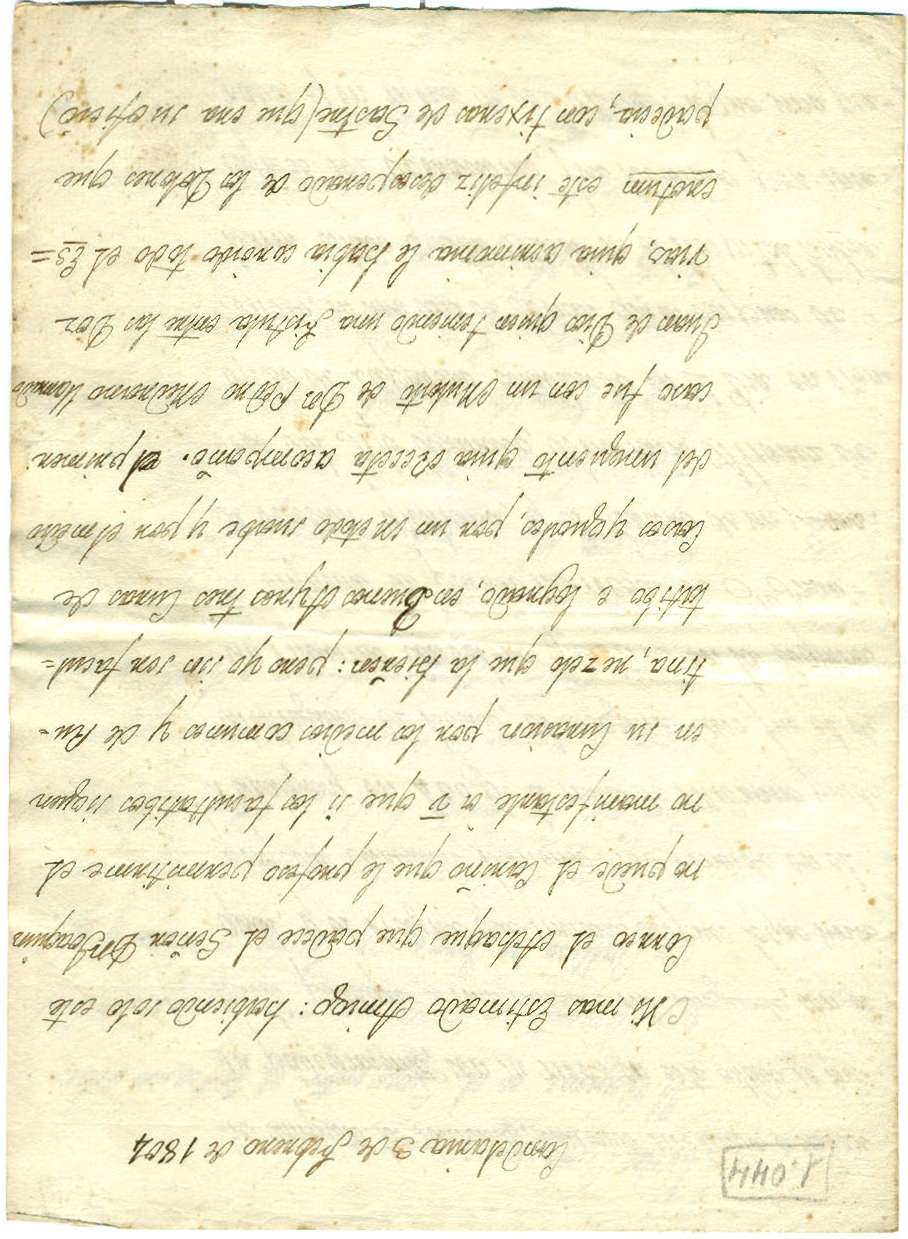 1.044
Candelaria 3 de Febrero de 1804
Mi mas Estimado Amigo: habiendo solo este
Correo el Achaque que padece el Señor Dn Joaquin
no puede el Cariño que le profeso permitirme el
no manifestarle a V que si los facultatibos siguen
en su Curacion por los medios comunes y de Ru=
tina, rezelo que la hierren: pero yo sin ser facul=
tatibo e logrado, en Buenos Ayres tres Curas de
Casos yguales, por un Metodo suabe y por el medio
del unguento cuia Receta acompaño. el primer
caso fue con un Mulato de Dn Pedro Medrano llamado
Juan de Dios quien teniendo una fistula entre las Dos
vias, cuia acrimonia le habia corroido todo el Es=
crotum este infeliz desesperado de los Dolores que
padecia, con tixeras de Sastre (que era su oficio)